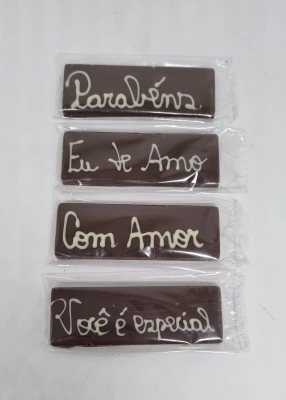 Parabéns
Eu te Amo
Com Amor
Você é especial